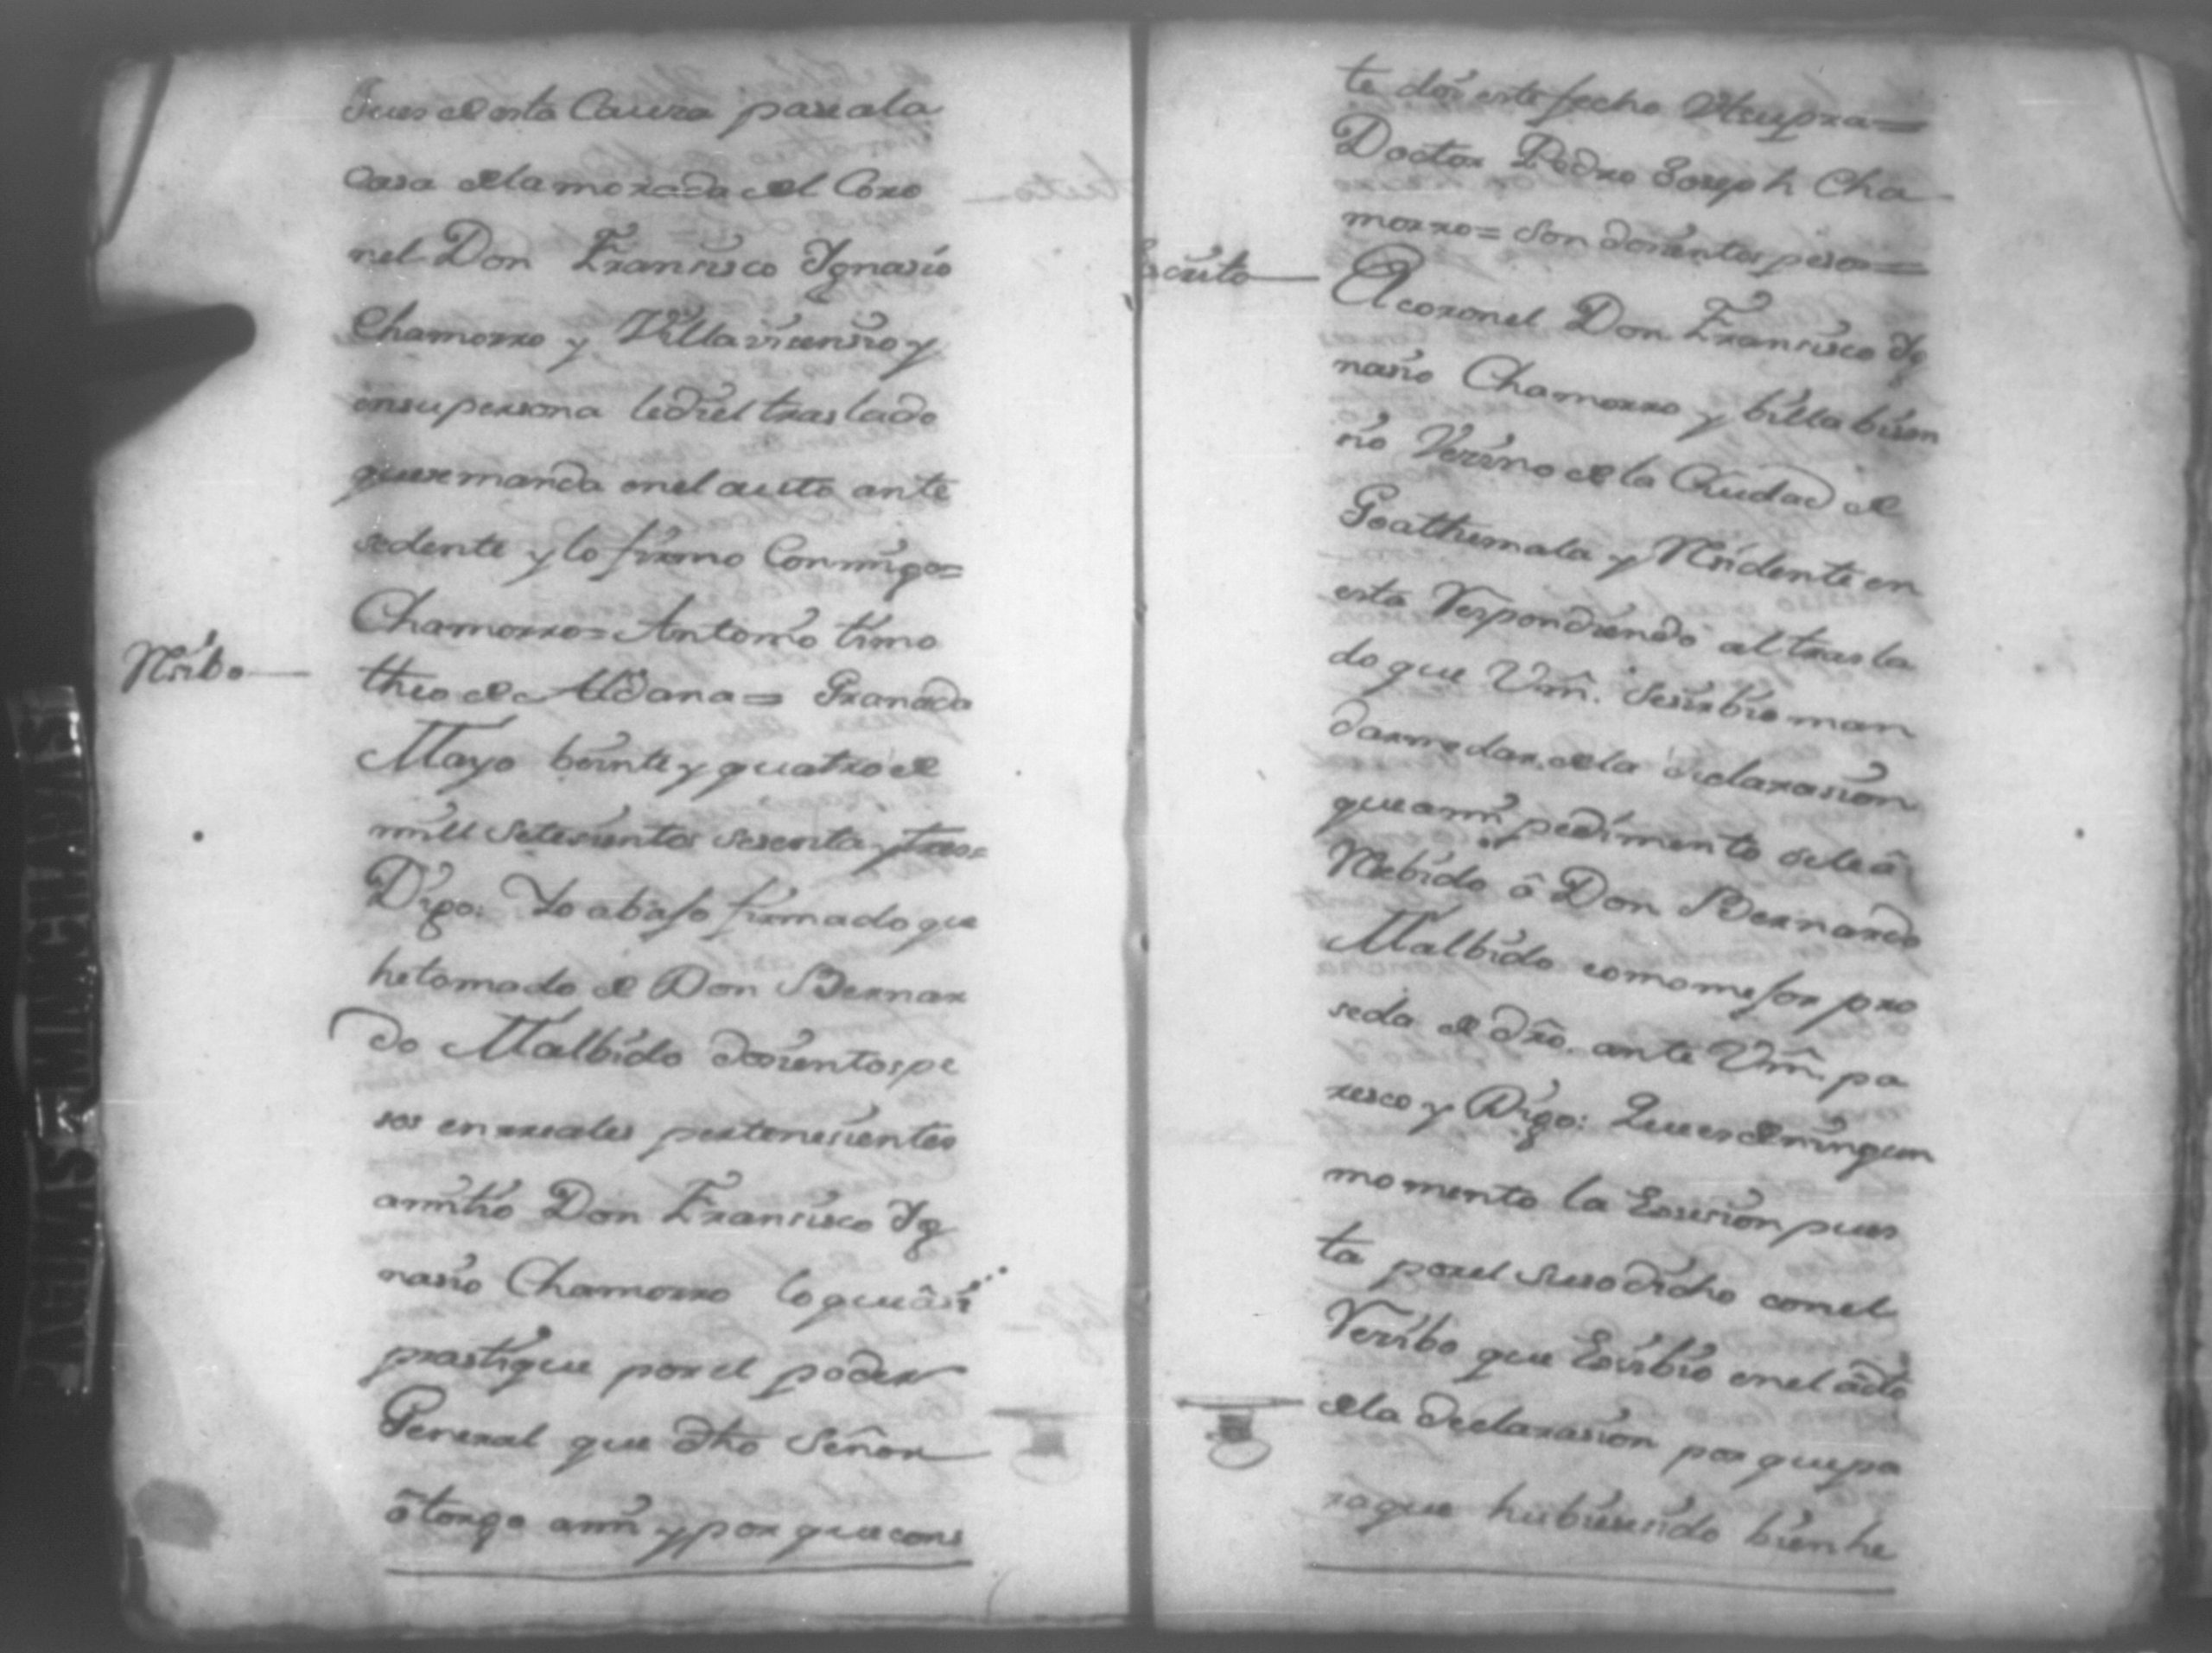 Jues de esta Causa pase a la
Casa de la morada del Coro
nel Don Fransisco Ygnasio
Chamorro y Villavisensio y
en su persona le di el traslado
que se manda en el auto ante
sedente y lo firmo Conmigo=
Chamorro= Antonio timo
Resibo
theo de Aldana= Granada
Mayo beinte y quatro de
mill setesientos sesenta y tres=
Digo: Yo abaso firmado que
he tomado de Don Bernar
do Malbido dosientos pe
sos en rreales pertenesientes
a mi tio Don Fransisco Yg
nasio Chamorro lo que âsi
prastique por el poder
General que dho Señor
ôtorgo a mi y por que cons
te doi este fecho Utsupra=
Doctor Pedro Joseph Cha
morro= Son dosientos pesos=
Escrito
El coronel Don Fransisco Yg
nasio Chamorro y billabisen
sio Vezino de la Ciudad de
Goathemala y Residente en
esta Respondiendo al trasla
do que Vm̃. se sirbio man
darme dar de la declarasion
que a mi pedimento se le â
Resebido â Don Bernardo
Malbido como mejor pro
seda de dr̃o. ante Vm̃. pa
resco y Digo: Que es de ningun
momento la Essesion pues
ta por el susodicho con el
Resibo que Essibio en el âcto
de la declarasion por que pa
ra que hubiese sido bien he